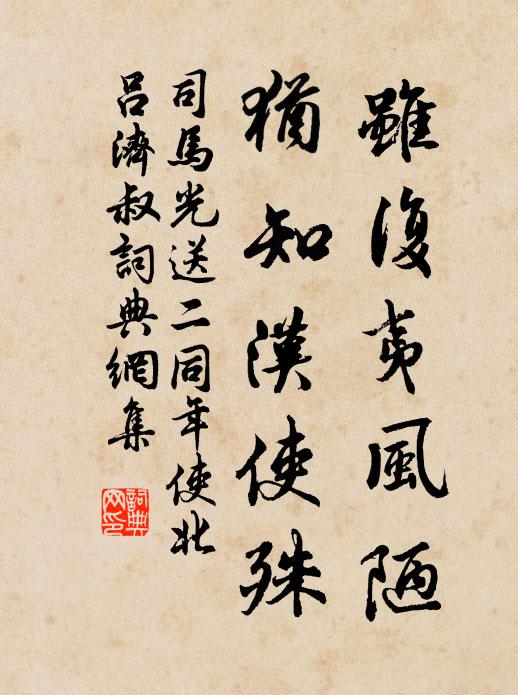 雖復夷風陋
猶知漢使殊
司馬光送二同年使北
呂濟叔詞典網集
詞典网印